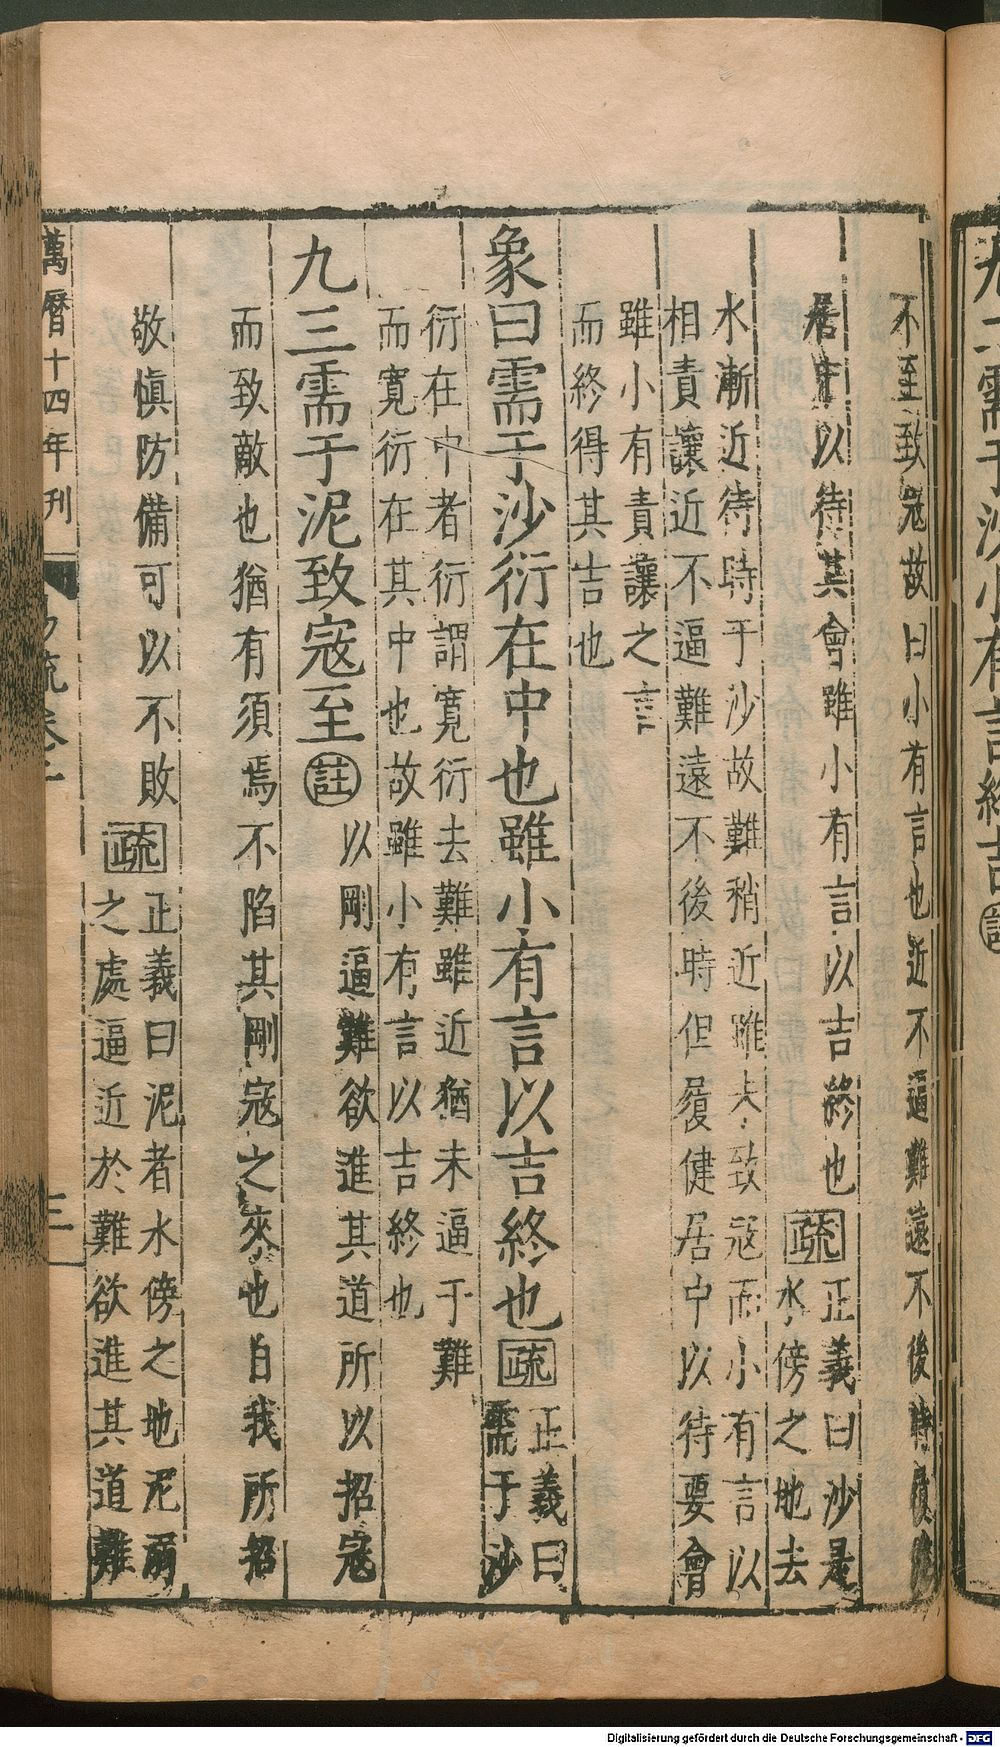 不至致寇故曰小有言也近不逼難遠不後時履健
居中以待其會雖小有言以吉終也疏正義曰沙是
水傍之地去
水漸近待時于沙故難稍近雖未致寇而小有言以
相責讓近不逼難遠不後時但履健居中以待要會
雖小有責讓之言
而終得其吉也
象曰需于沙衍在中也雖小有言以吉終也疏正義曰
需于沙
衍在中者衍謂寬衍去難雖近猶未逼于難
而寬衍在其中也故雖小有言以吉終也
九三需于泥致寇至註以剛逼難欲進其道所以招寇
而致敵也猶有須焉不陷其剛寇之來也自我所招
敬慎防備可以不敗疏正義曰泥者水傍之地泥溺
之處逼近於難欲進其道難
萬曆十四年刊
易疏卷二
三
九二需于沙小有言終吉註
Digitalisierung gefördert durch die Deutsche Forschungsgemeinschaft - DFG